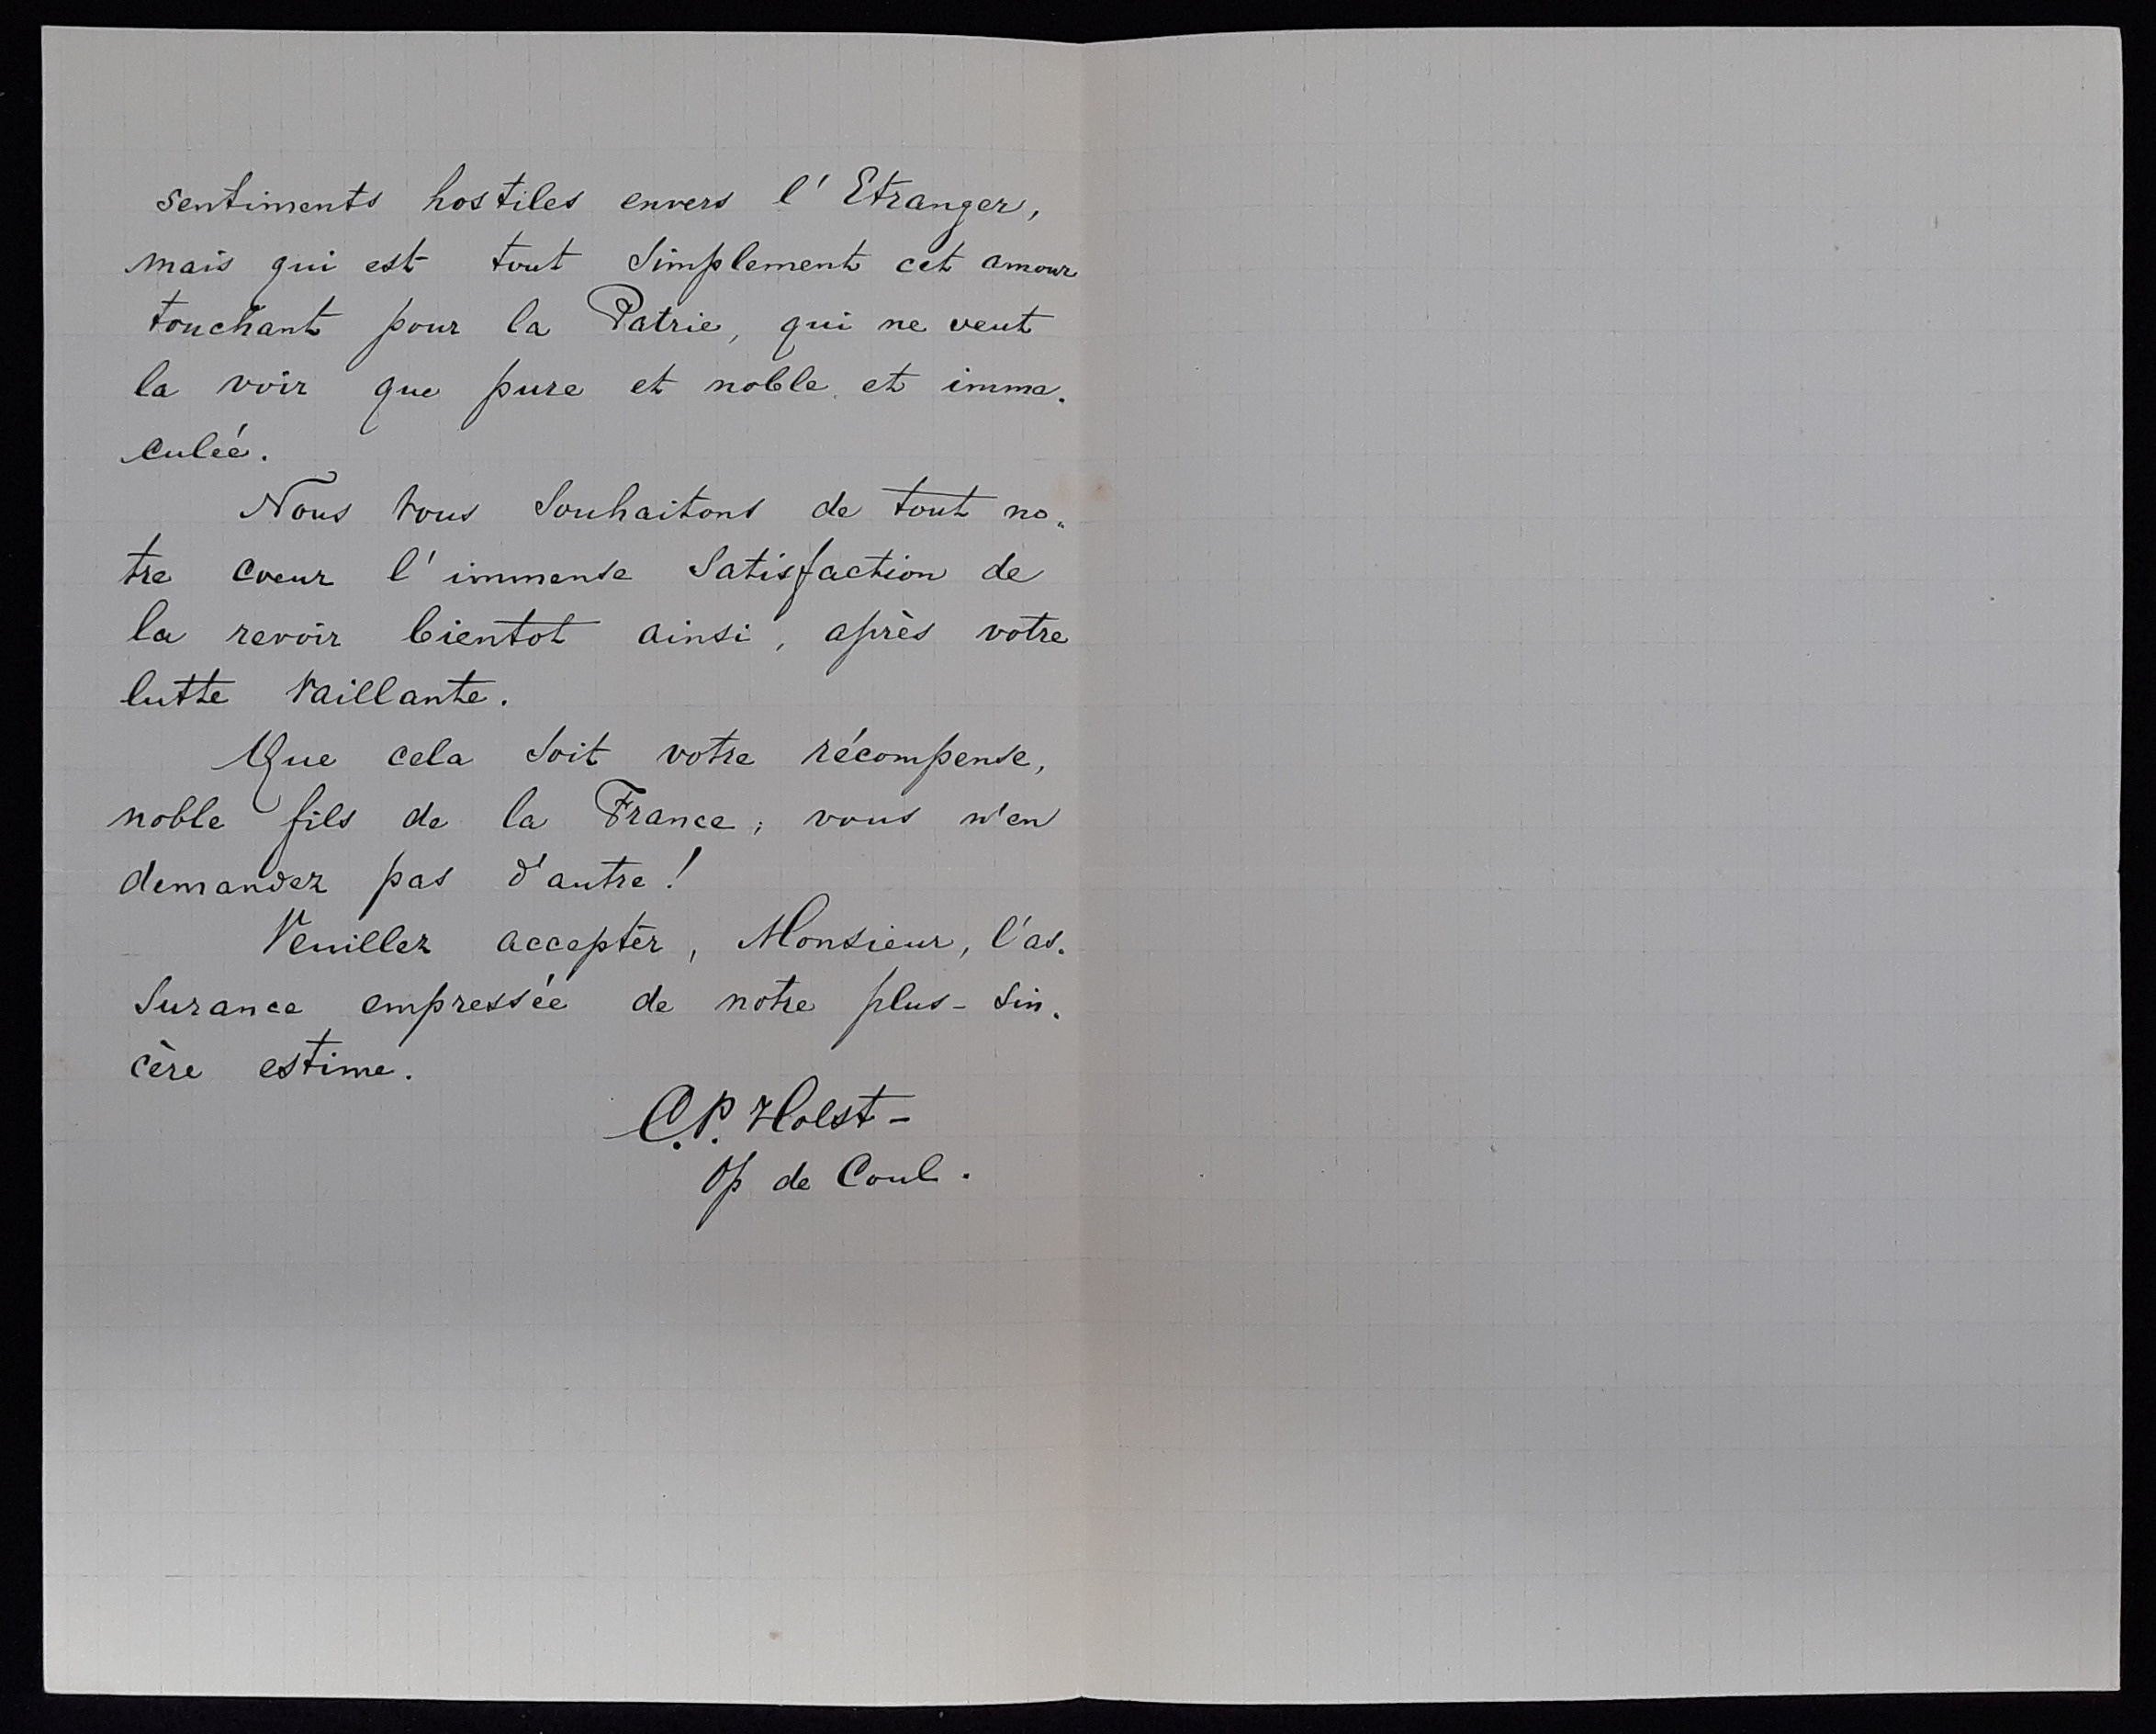 sentiments hostiles envers l'Etranger,
mais qui est tout simplement cet amour
touchant pour la Patrie, qui ne veut
la voir que pure et noble et imma-
culée.
Nous vous souhaitons de tout no-
tre coeur l'immense satisfaction de
la revoir bientot ainsi, après votre
lutte vaillante.
Que cela soit votre récompense,
noble fils de la France; vous n'en
demandez pas d'autre!
Veuillez accepter, Monsieur, l'as-
surance empressée de notre plus-sin-
cère estime.
C.P. Holst-
Op de Coul.